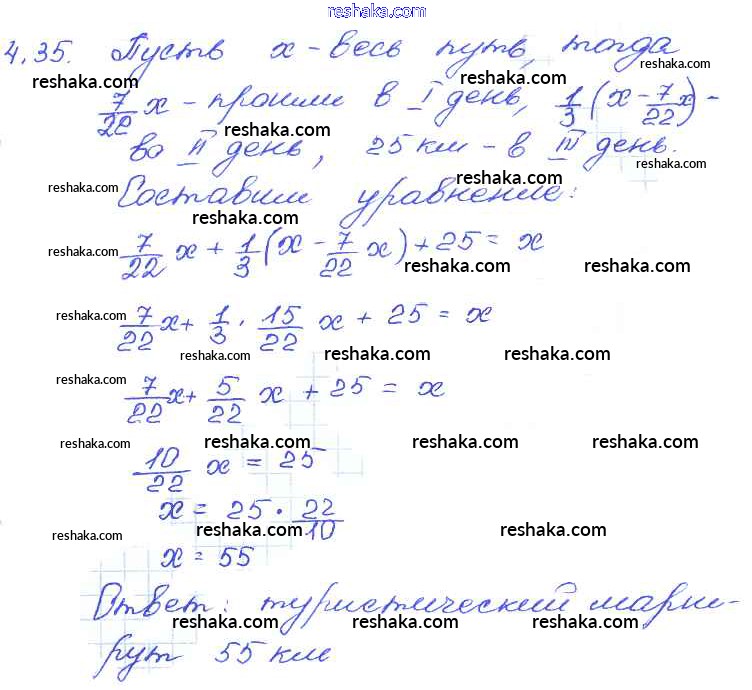 www.reshaka.com
reshaka.com
4.35. Пусть x - весь путь, тогда
reshaka.com reshaka.com reshaka.com
7/22 x - прошли в I день, 1/3 (x - 7/22 x) -
reshaka.com
во II день, 25 км - в III день.
reshaka.com reshaka.com reshaka.com
Составим уравнение:
reshaka.com
7/22 x + 1/3 (x - 7/22 x) + 25 = x
reshaka.com reshaka.com reshaka.com
7/22 x + 1/3 · 15/22 x + 25 = x
reshaka.com reshaka.com reshaka.com
7/22 x + 5/22 x + 25 = x
reshaka.com
reshaka.com reshaka.com reshaka.com reshaka.com
10/22 x = 25
x = 25 · 22/10
reshaka.com reshaka.com reshaka.com
x = 55
Ответ: туристический марш-
reshaka.com reshaka.com reshaka.com
рут 55 км